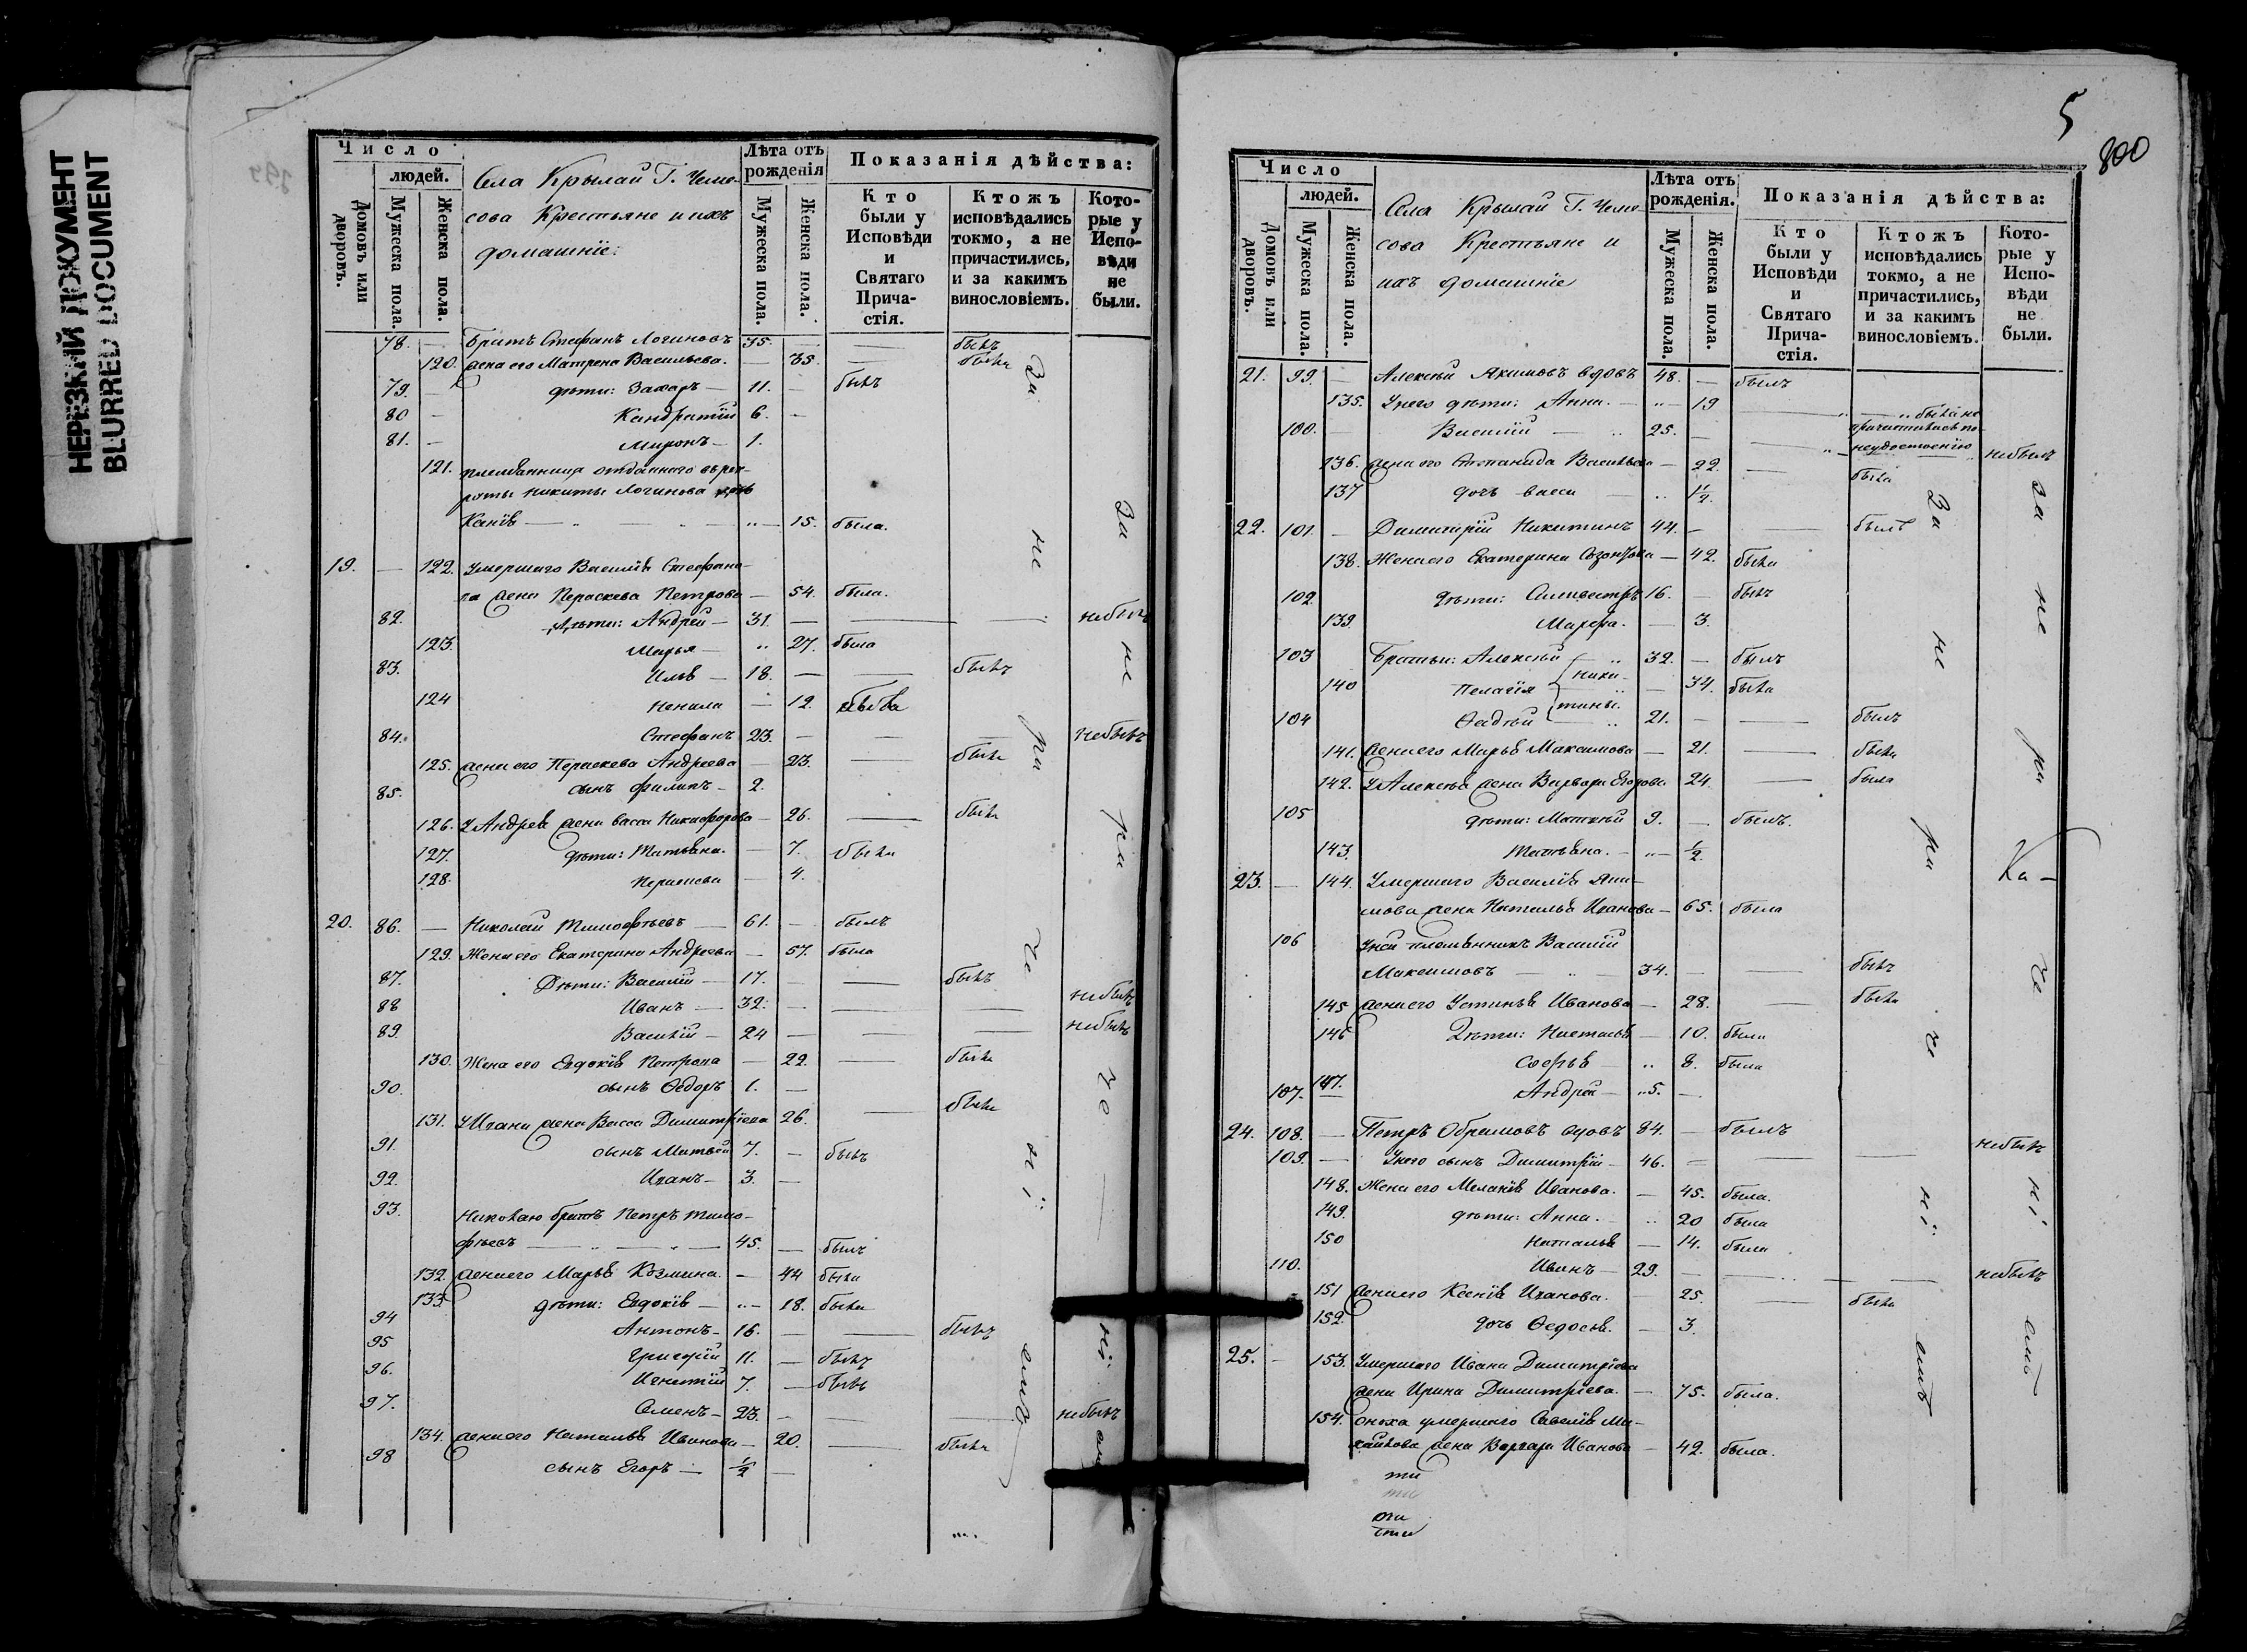 НЕРЕЗКИЙ ДОКУМЕНТ
BLURRED DOCUMENT
Число
людей.
Домовъ или дворовъ.
Мужеска пола.
Женска пола.
Села Крылай Г. Чемо-
сова Крестьяне и ихъ
домашніе:
Лѣта отъ рожденія
Мужеска пола.
Женска пола.
Показанія дѣйства:
Кто были у Исповѣди и Святаго Прича-стія.
Ктожъ исповѣдались токмо, а не причастились, и за какимъ винословіемъ.
Кото-рые у Испо-вѣди не были.
78. — Братъ Стефанъ Логиновъ 35. — — былъ
120. жена его Матрена Васильева. — 35 — была
79. — дѣти: Захаръ — 11. — былъ
80 — Кандратій 6. —
81. — Миронъ — 1.
121. племянница отданнаго въ рек-
руты Никиты Логинова дочь
Ксенія — — 15. была.
19. — 122. Умершаго Василія Стефано-
ва жена Параскева Петрова — 54. была.
82. Дѣти: Андрей — 31. — — небылъ
123. Марья — 27. была
83. Илья — 18. — — былъ
124 Ненила — 12. была
84. Стефанъ 23. — — — небылъ
125. жена его Параскева Андреева — 23. — была
85. сынъ Филипъ — 2.
126. У Андрея жена Васса Никифорова — 26. — была
127. дѣти: Татьяна. — 7. была
128. Параскева — 4.
20. 86. — Николай Тимофѣевъ — 61. — былъ
129. Жена его Екатерина Андреева — 57. была
87. Дѣти: Василій — 17. — — былъ
88 Иванъ — 32. — — — небылъ
89. Василій — 24 — — — небылъ
130. Жена его Евдокія Петрова — 22. — была
90. сынъ Ѳедоръ 1. —
131. У Ивана жена Васса Димитріева 26. — была
91. сынъ Матвей 7. — былъ
92. Иванъ — 3. —
93. Николаю братъ Петръ Тимо-
фѣевъ — — 45. — былъ
132. жена его Марья Козмина. — 44 была
133. дѣти: Евдокія — 18. была
94 Антонъ — 16. — — былъ
95 Григорій 11. — былъ
96. Игнатій 7. — былъ
97. Семенъ — 23. — — — небылъ
134. жена его Наталья Иванова — 20. — была
98 сынъ Егоръ — 1/2 —
За не ра че ні емъ
За не ра че ні емъ
5
800
Число
людей.
Домовъ или дворовъ.
Мужеска пола.
Женска пола.
Села Крылай Г. Чемо-
сова Крестьяне и
ихъ домашніе
Лѣта отъ рожденія.
Мужеска пола.
Женска пола.
Показанія дѣйства:
Кто были у Исповѣди и Святаго Прича-стія.
Ктожъ исповѣдались токмо, а не причастились, и за какимъ винословіемъ.
Кото-рые у Испо-вѣди не были.
21. 99. — Алексѣй Акимовъ вдовъ 48. — былъ
135. У него дѣти: Анна. — 19 — была не
причастилась по
неудостоенію
100. — Василій — 25. — — небылъ
136. жена его Степанида Васильева — 22. — была
137 дочь Васса — 1 1/2.
22. 101. — Димитрій Никитинъ 44. — — былъ
138. Жена его Екатерина Созонтова — 42. была
102. дѣти: Силивестръ 16. — былъ
139. Марфа. — 3.
103 Братья: Алексѣй — 32. — былъ
Ники-
тины.
140 Пелагія — 34. была
104 Ѳадѣй — 21. — — былъ
141. жена его Марья Максимова — 21. — была
142. У Алексѣя жена Варвара Егорова 24. — была
105 дѣти: Матвѣй 9. — былъ.
143. Татьяна. — 1/2.
23. — 144. Умершаго Василія Яки-
мова жена Наталья Иванова — 65. была
106 У ней племянникъ Василій
Максимовъ — 34. — — былъ
145 жена его Устинья Иванова — 28. — была
146 Дѣти: Наталья — 10. была
147. Софья — 8. была
107. Андрей — 5. —
24. 108. — Петръ Обрамовъ вдовъ 84. — былъ
109. — У него сынъ Димитрій — 46. — — — небылъ
148. Жена его Меланія Иванова. — 45. была.
149. дѣти: Анна. — 20 была
150 Наталья — 14. была
110. Иванъ — 29. — — — небылъ
151 жена его Ксенія Иванова. — 25. — была
152. дочь Ѳедосья. — 3.
25. — 153. Умершаго Ивана Димитріева
жена Ирина Димитріева. — 75. была.
154. сноха умершаго Савелія Ми-
хайлова жена Варвара Иванова — 42. была.
За не ра че ні емъ
За не ра че ні емъ
Ка-